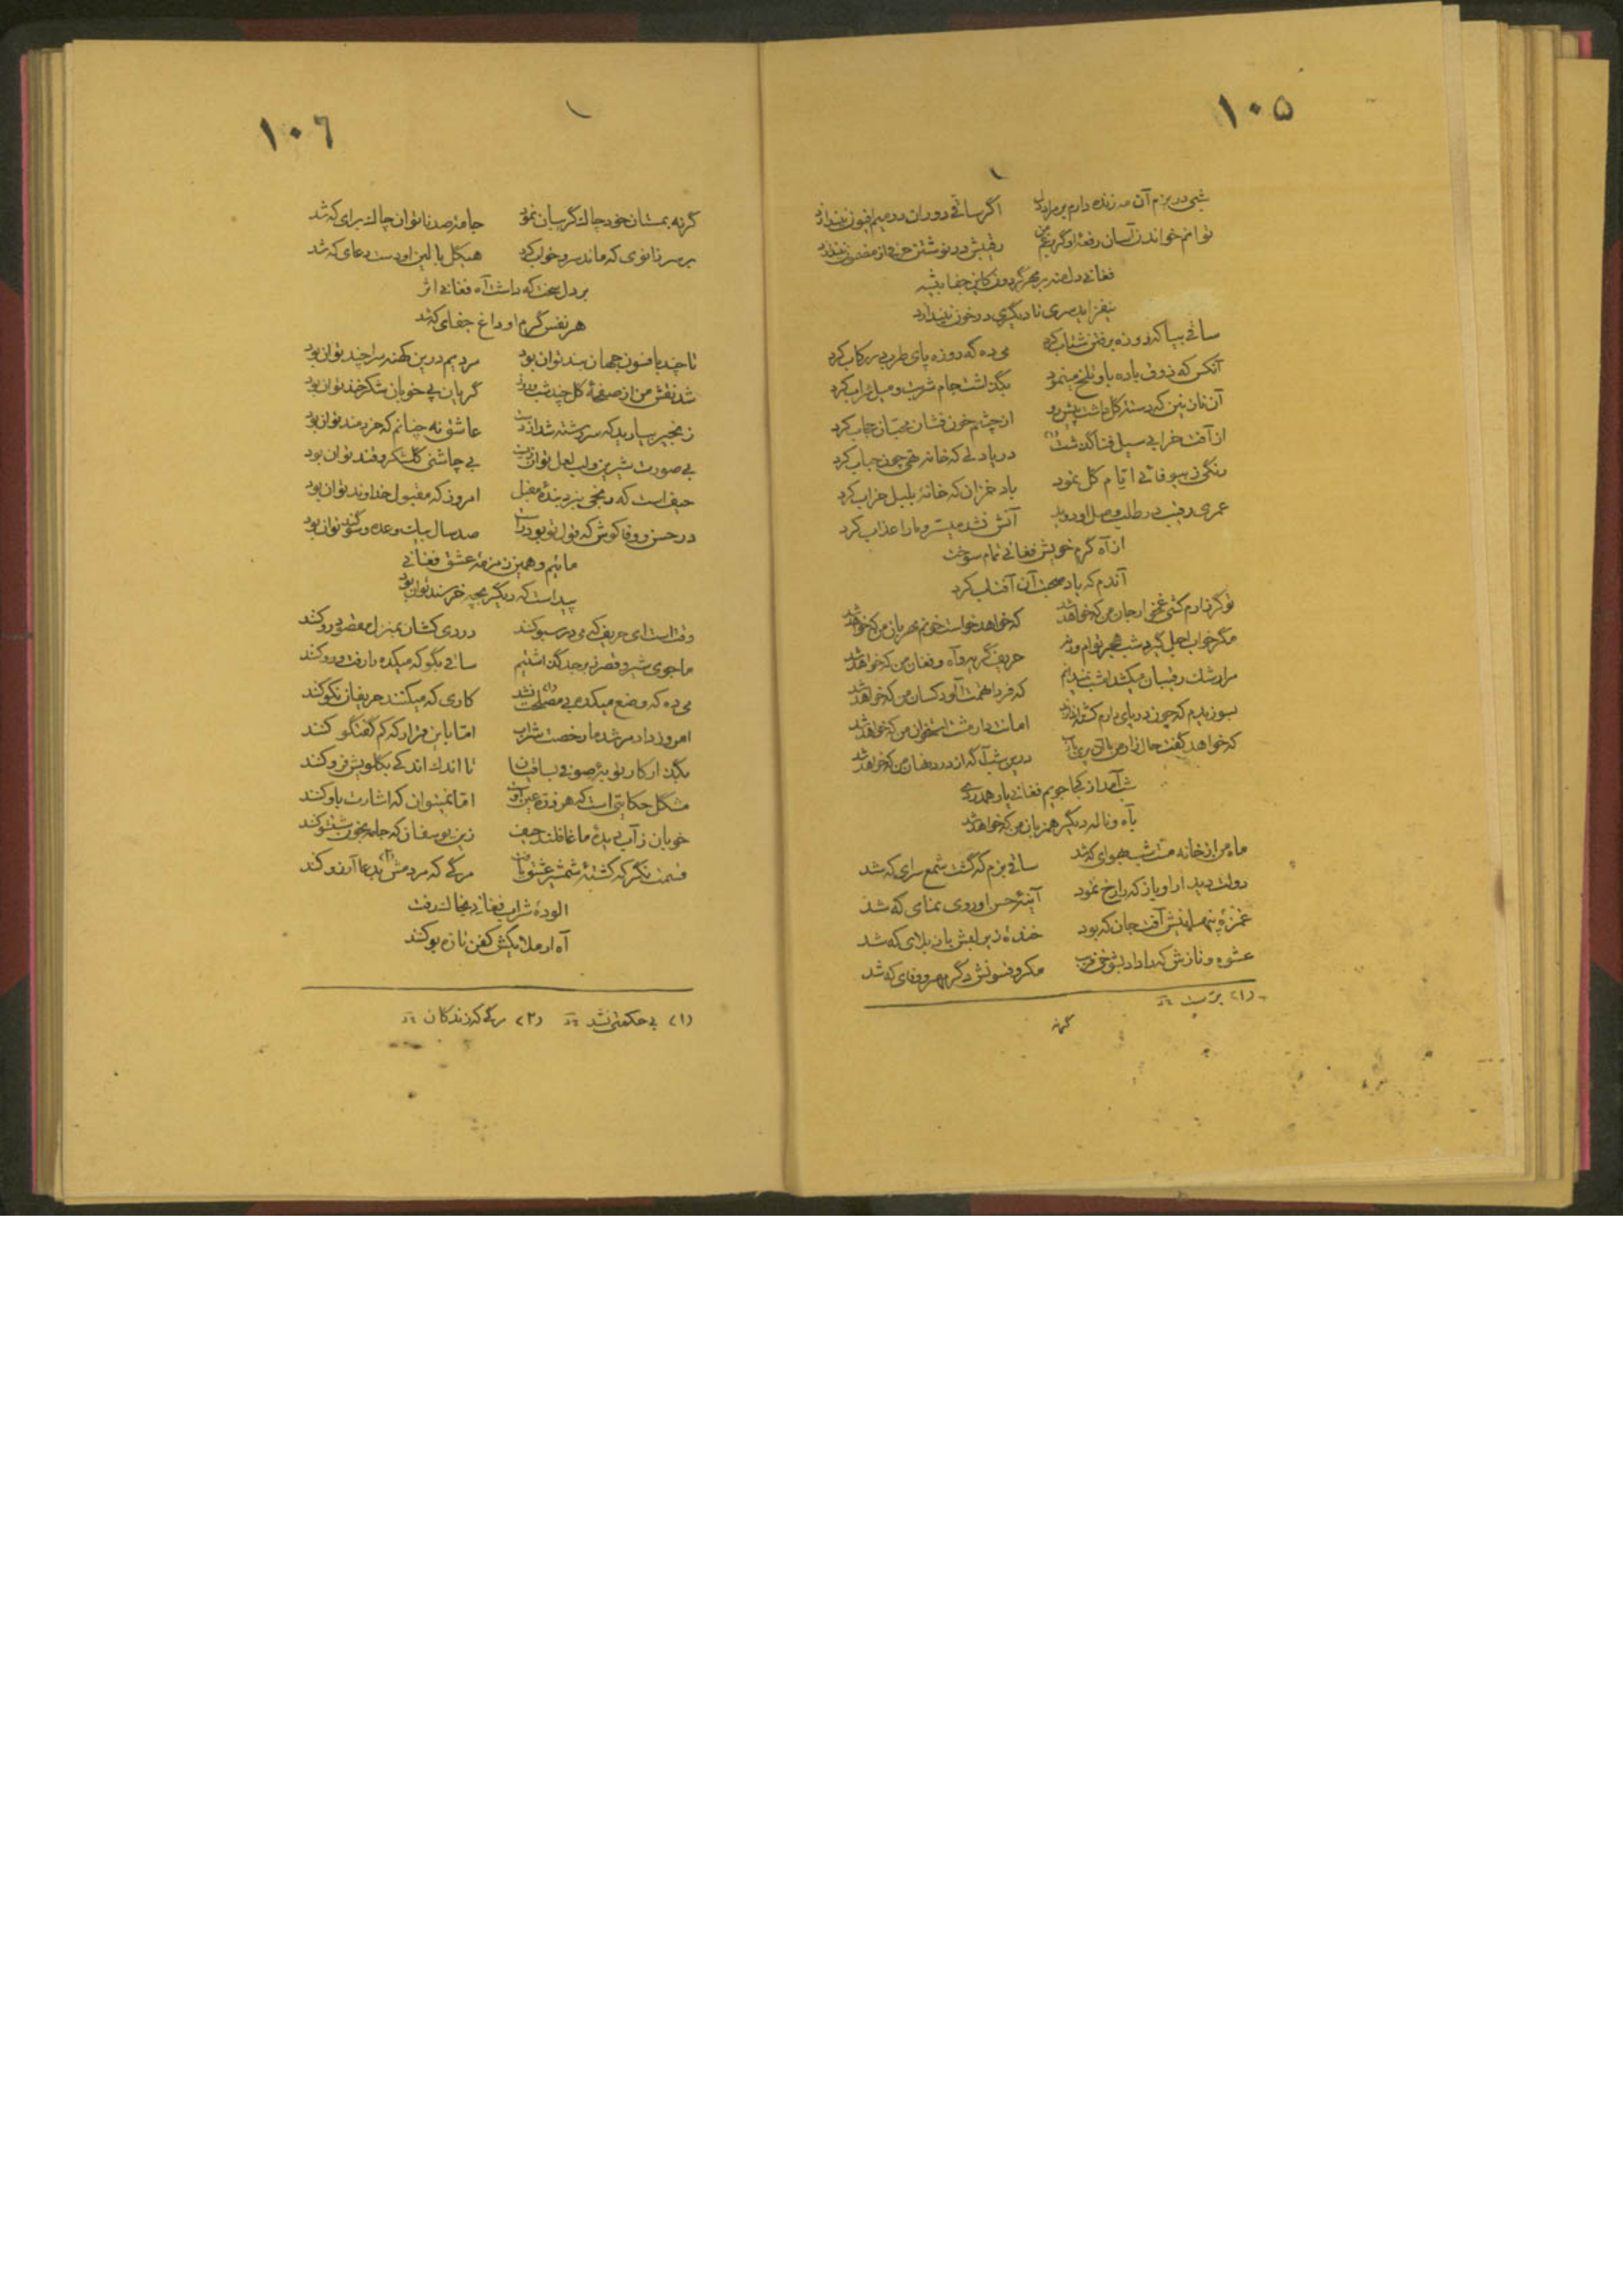 ۱۰۵
شبی در بزم آن مه زنده دارم بر مراد دل اگر ساقی دوران در میم افیون نیندازد
توانم خواند زآسان رقعهٔ او گر رقیبش در نوشتن حرفی از مضمون نیندازد
فغانی دل منه بر مهر گردون کاین جفا پیشه
نیفرازد سری تا دیگری در خون نیندازد
ساقی بیا که روزه برفتن شتاب کرد می ده که روزه پای طرب در رکاب کرد
آنکس که ذوق باده باو تلخ مینمود بگذاشت جام شربت و میل شراب کرد
آن نازنین که دسته گل داشت پیش رو از چشم خون فشان محبّان حجاب کرد
از آفت خرابی سیل فنا گذشت(۱) دریا دلی که خانه تهی چون حباب کرد
رنگی ز بیوفائی ایّام گل نمود باد خزان که خانهٔ بلبل خراب کرد
عمری رقیب در طلب وصل او دوید آتش نشد میسّر و ما را عذاب کرد
از آه گرم خویش فغانی تمام سوخت
آندم که یاد صحبت آن آفتاب کرد
تو گر زارم کشی غمخوار جان من که خواهد شد که خواهد خواست خونم مهربان من که خواهد شد
مگر خواب اجل گیرد شب هجر توام ورنه حریف گریه و آه و فغان من که خواهد شد
مرا رشک رقیبان میکشد امشب نمیدانم که فردا همّت آلود کسان من که خواهد شد
بسوزیدم که چون در پای امانت دار مشت استخوان من که خواهد شد
که خواهد گفت حال زار من درین شب آگه از درد نهان من که خواهد شد
شب آمد از کجا جویم فغانی یار همدردی
بآه و ناله دیگر همزبان من که خواهد شد
ماه من از خانه مست شب بهوای که شد ساقی بزم که گشت شمع سرای که شد
دولت دیدار او باز که را رخ نمود آینهٔ حسن او روی نمای که شد
غمزهٔ پنهانیش آفت جان که بود خندهٔ زیر لبش باز بلای که شد
عشوه و نازش که را داد بشوخی فریب مکر و فسونش دگر مهر و وفای که شد
(۱) برست
گرنه
۱۰۶
گرنه بمستان خود چاک گریبان نمود جامهٔ صد ناتوان چاک برای که شد
بر سر زانوی که ماند سر و خواب کرد هیکل بالین او دست دعای که شد
بر دل سخت که داشت آه فغانی اثر
هر نفس گرم او داغ جفای که شد
تا چند بافسون جهان بند توان بود مردیم درین کهنه سرا چند توان بود
شد نقش من از صفحهٔ گل چند شب و روز گریان پی خوبان شکرخند توان بود
زنجیر بیارید که سر رشته شد از دست عاشق نه چنانم که خردمند توان بود
بی صورت شیرین و لب لعل توان زیست بی چاشنی گلشکر و قند توان بود
حیف است که رنجی نبرد بندهٔ مقبل امروز که مقبول خداوند توان بود
در حسن وفا کوش که قول تو بود راست صد سال بیک وعده و سوگند توان بود
مائیم و همین زمزمهٔ عشق فغانی
پیداست که دیگر بچه خرسند توان بود
وقتست ای حریف که می در سبو کند دردی کشان بمنزل مقصود رو کند
ما جوی شیر و قصر زبرجد گذاشتیم ساقی بگو که میکده را رفت و رو کند
می ده که وضع میکده بی مصلحت(۱) نشد کاری که میکنند حریفان نکو کند
امروز داد مرشد ما رخصت شراب امّا باین قرار که کم گفتگو کند
بگذار کار توبهٔ صوفی بساقیان تا اندک اندکی بگلویش فرو کند
مشکل حکایتی است که هر ذره عین اوست امّا نمیتوان که اشارت باو کند
خوبان ز آب دیدهٔ ما غافلند حیف زین یوسفان که جامه بخون شستشو کند
قسمت نگر که کشتهٔ شمشیر عشق یافت مرگی که مردمش(۲) بدعا آرزو کند
آلودهٔ شراب فغانی بخاک رفت
آه ار ملایکش کفن تازه بو کند
(۱) بی حکمتی نشد (۲) مرگی که زندگان